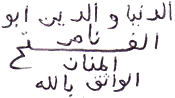 الدنيا و الدين ابو
ناصر
الفتح
المنان
الواثق بالله